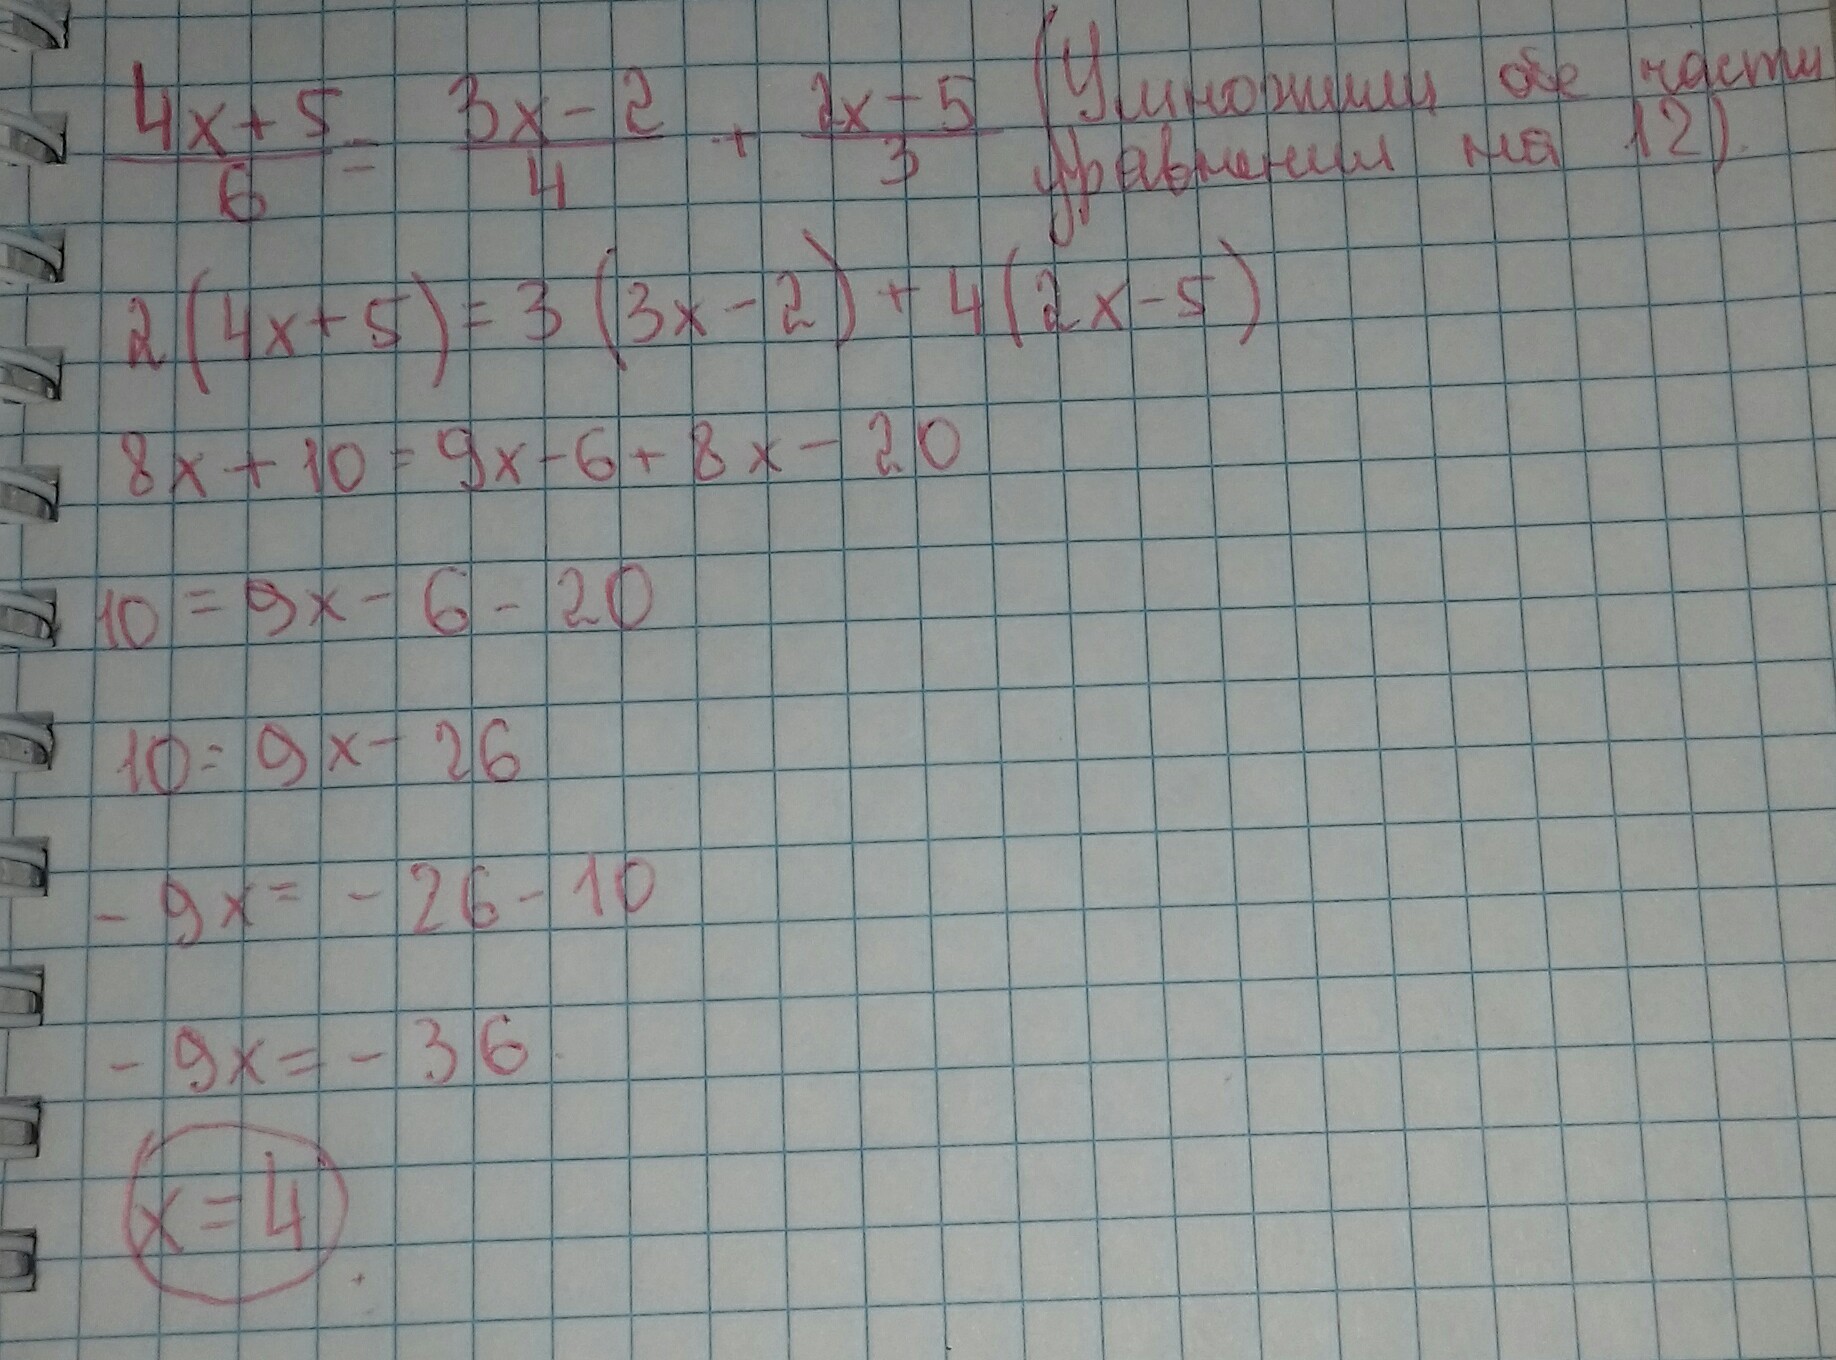 (4x+5)/6 = (3x-2)/4 + (2x-5)/3 (Умножим обе части
уравнения на 12).
2(4x+5)=3(3x-2)+4(2x-5)
8x+10=9x-6+8x-20
10=9x-6-20
10=9x-26
-9x=-26-10
-9x=-36
x=4